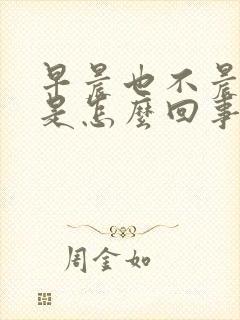 早晨也不晨
是怎麼回事
周金如